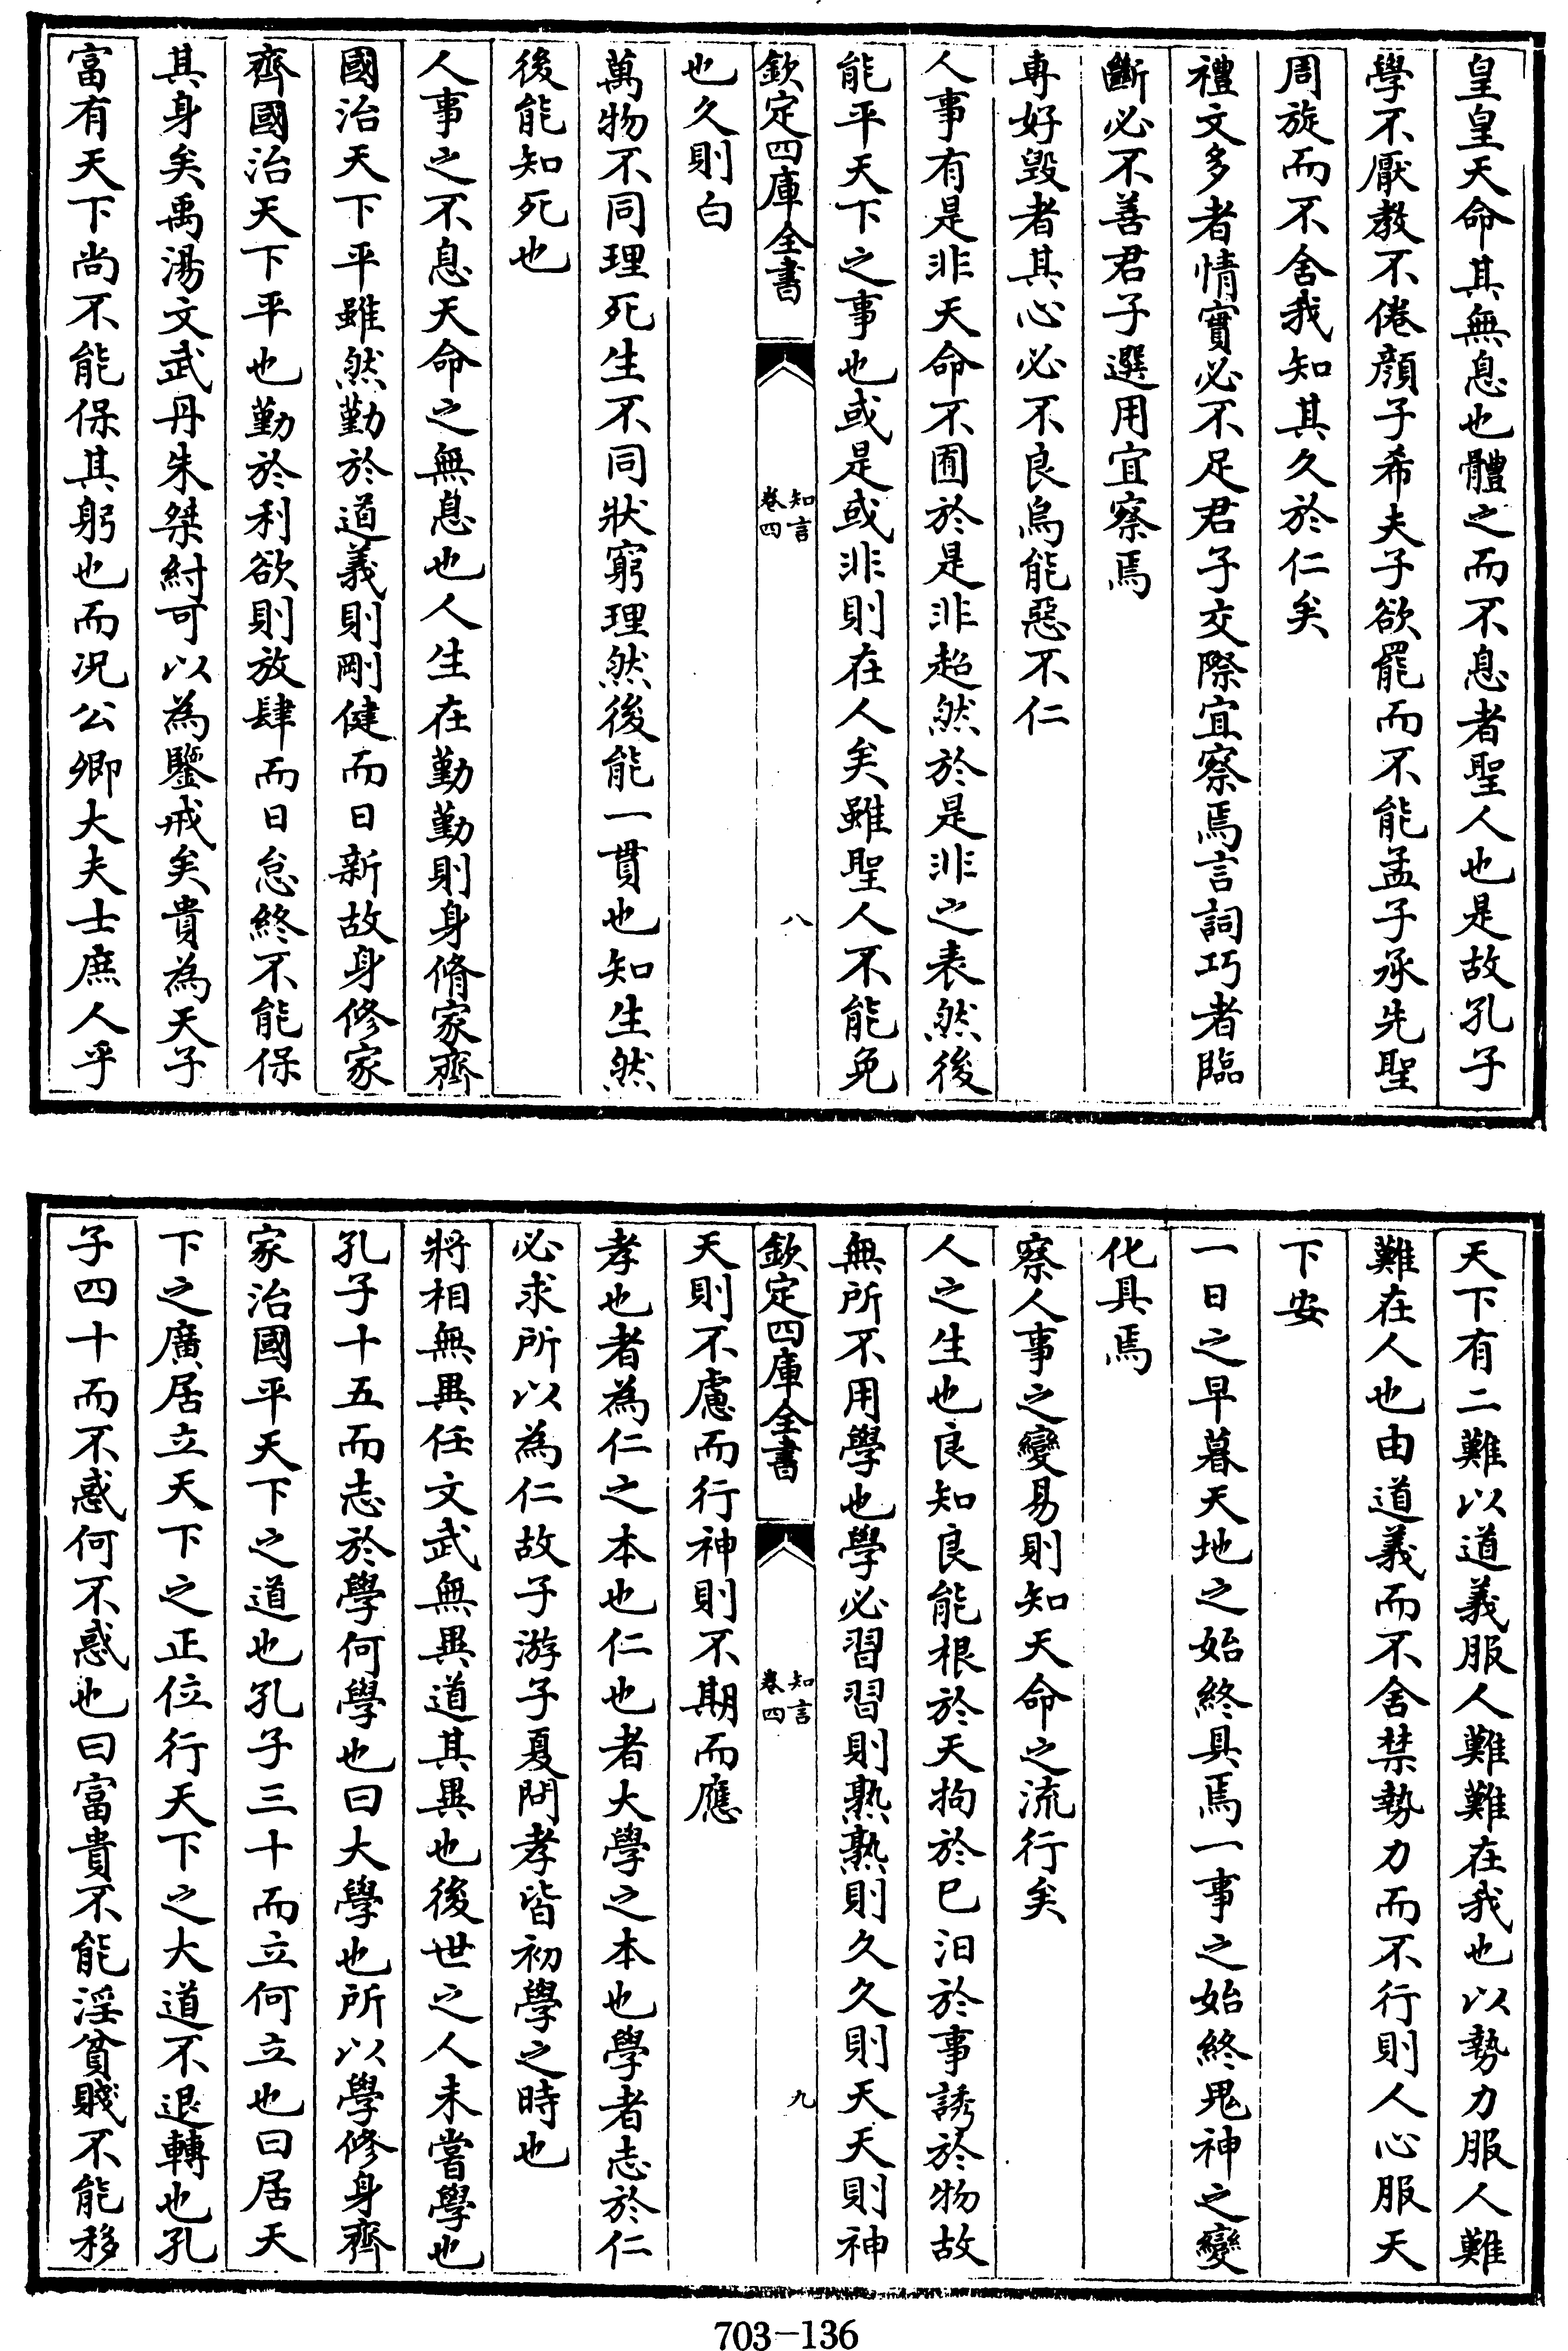 皇皇天命其無息也體之而不息者聖人也是故孔子
學不厭教不倦顔子希夫子欲罷而不能孟子承先聖
周旋而不舍我知其久於仁矣
禮文多者情實必不足君子交際宜察焉言詞巧者臨
斷必不善君子選用宜察焉
專好毀者其心必不良烏能惡不仁
人事有是非天命不囿於是非超然於是非之表然後
能平天下之事也或是或非則在人矣雖聖人不能免
欽定四庫全書
知言
卷四
八
也久則白
萬物不同理死生不同狀窮理然後能一貫也知生然
後能知死也
人事之不息天命之無息也人生在勤勤則身脩家齊
國治天下平雖然勤於道義則剛健而日新故身修家
齊國治天下平也勤於利欲則放肆而日怠終不能保
其身矣禹湯文武丹朱桀紂可以為鑒戒矣貴為天子
富有天下尚不能保其躬也而况公卿大夫士庶人乎
天下有二難以道義服人難難在我也以勢力服人難
難在人也由道義而不舍禁勢力而不行則人心服天
下安
一日之早暮天地之始終具焉一事之始終鬼神之變
化具焉
察人事之變易則知天命之流行矣
人之生也良知良能根於天拘於已汩於事誘於物故
無所不用學也學必習習則熟熟則久久則天天則神
欽定四庫全書
知言
卷四
九
天則不慮而行神則不期而應
孝也者為仁之本也仁也者大學之本也學者志於仁
必求所以為仁故子游子夏問孝皆初學之時也
將相無異任文武無異道其異也後世之人未嘗學也
孔子十五而志於學何學也曰大學也所以學修身齊
家治國平天下之道也孔子三十而立何立也曰居天
下之廣居立天下之正位行天下之大道不退轉也孔
子四十而不惑何不惑也曰富貴不能淫貧賤不能移
703-136